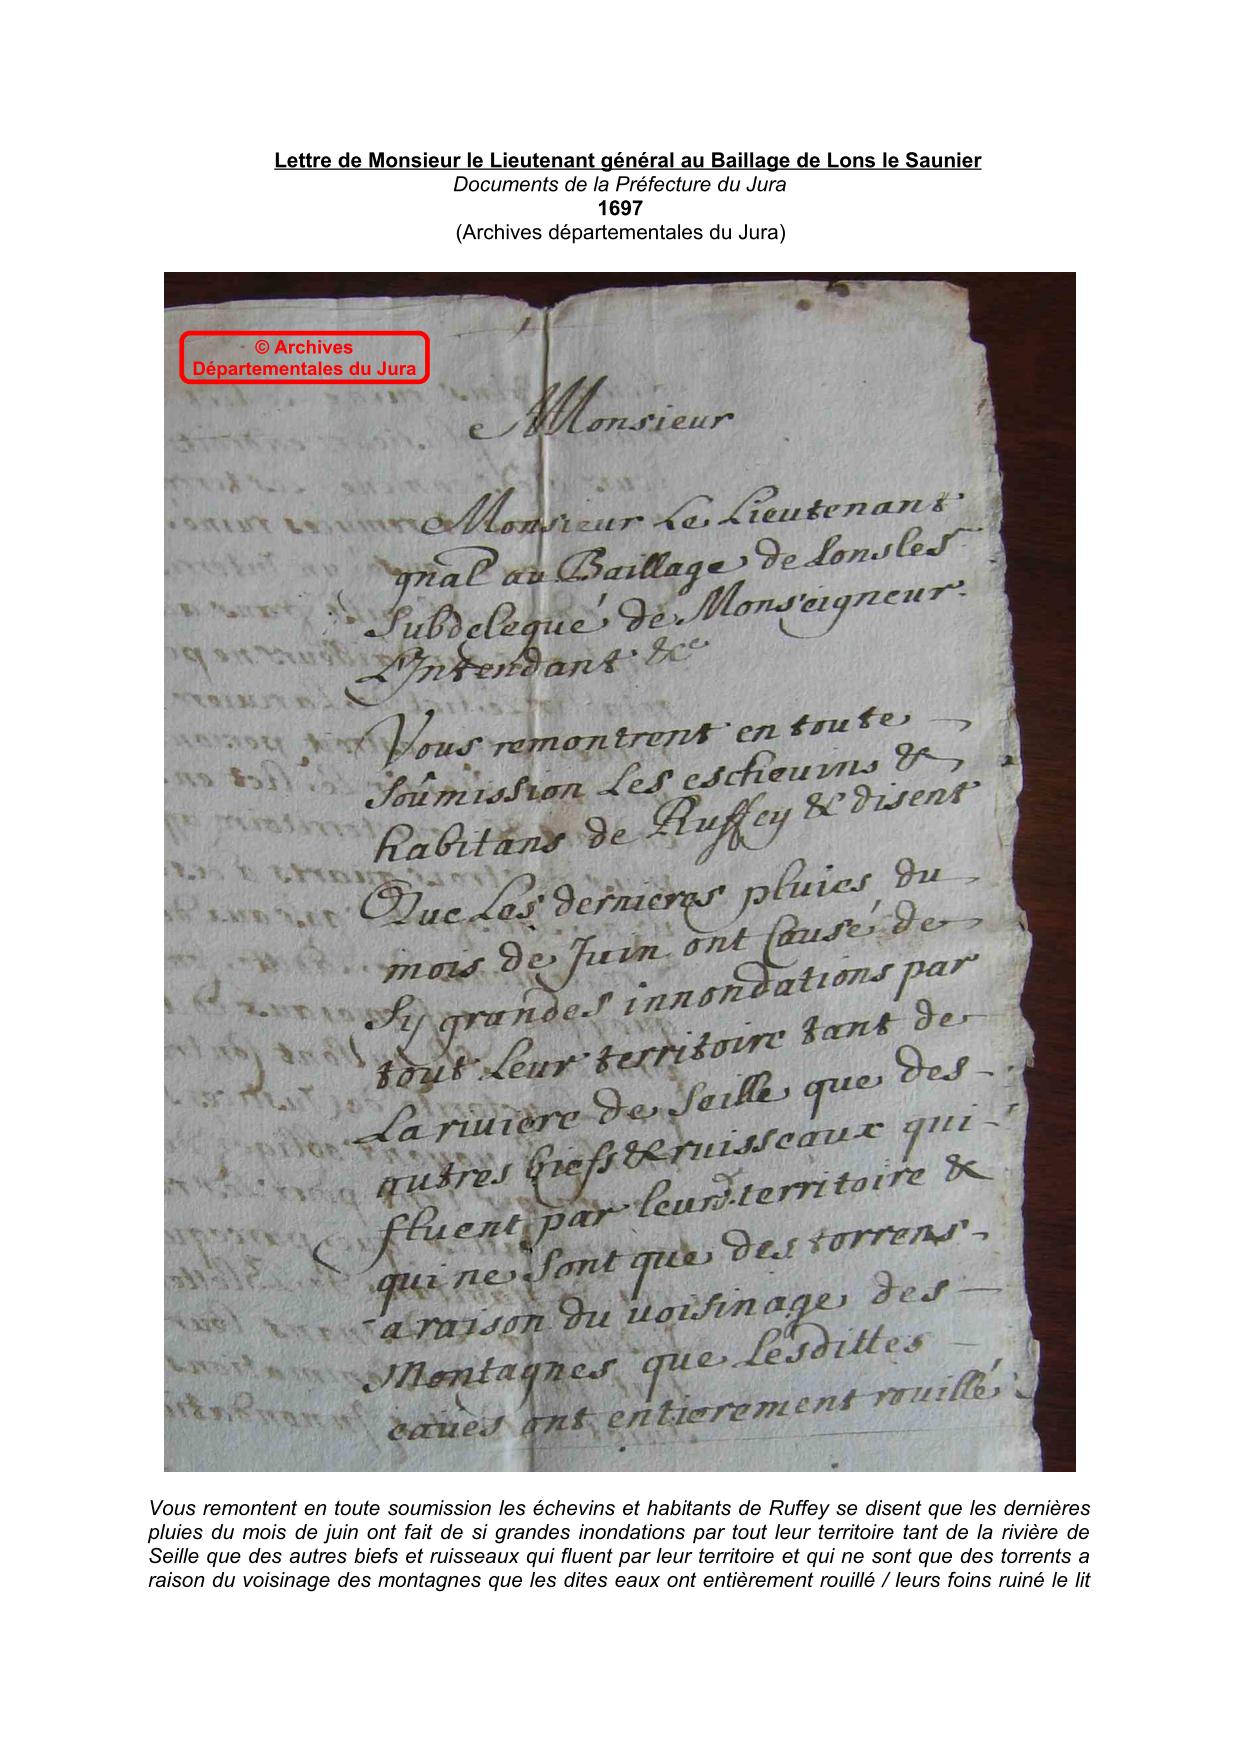 Lettre de Monsieur le Lieutenant général au Baillage de Lons le Saunier
Documents de la Préfecture du Jura
1697
(Archives départementales du Jura)
© Archives
Départementales du Jura
Monsieur
Monsieur Le Lieutenant
gnal au Baillage de Lons les
Subdelegué de Monseigneur
L'Intendant &ce
Vous remontrent en toute
soumission Les escheuins &
habitans de Ruffey & disent
Que Les dernieres pluies du
mois de Juin ont Causé de
Sy grandes innondations par
tout Leur territoire tant de
La riuiere de Seille que des
autres biefs & ruisseaux qui
fluent par leurs territoire &
qui ne sont que des torrens
a raison du uoisinage des
Montagnes que Lesdittes
eaües ont entierement rouillé
Vous remontent en toute soumission les échevins et habitants de Ruffey se disent que les dernières
pluies du mois de juin ont fait de si grandes inondations par tout leur territoire tant de la rivière de
Seille que des autres biefs et ruisseaux qui fluent par leur territoire et qui ne sont que des torrents a
raison du voisinage des montagnes que les dites eaux ont entièrement rouillé / leurs foins ruiné le lit